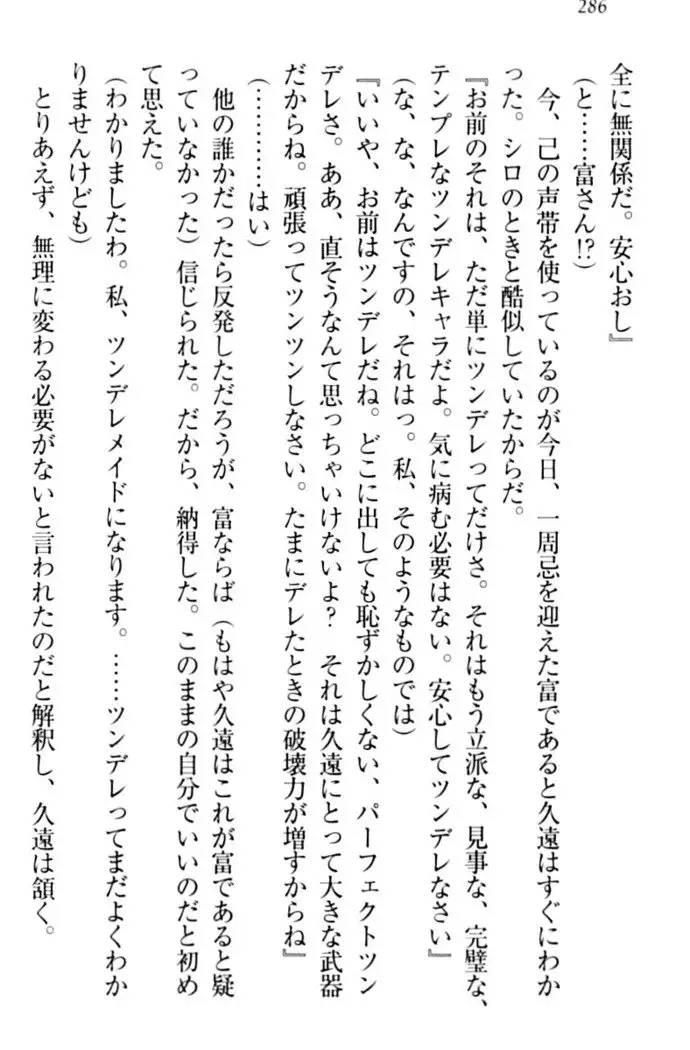 286
全に無関係だ。安心おし』
(と……富さん!?)
　今、己の声帯を使っているのが今日、一周忌を迎えた富であると久遠はすぐにわか
った。シロのときと酷似していたからだ。
『お前のそれは、ただ単にツンデレってだけさ。それはもう立派な、見事な、完璧な、
テンプレなツンデレキャラだよ。気に病む必要はない。安心してツンデレなさい』
(な、な、なんですの、それはっ。私、そのようなものでは)
『いいや、お前はツンデレだね。どこに出しても恥ずかしくない、パーフェクトツン
デレさ。ああ、直そうなんて思っちゃいけないよ？　それは久遠にとって大きな武器
だからね。頑張ってツンツンしなさい。たまにデレたときの破壊力が増すからね』
(…………はい)
　他の誰かだったら反発しただろうが、富ならば（もはや久遠はこれが富であると疑
っていなかった）信じられた。だから、納得した。このままの自分でいいのだと初め
て思えた。
(わかりましたわ。私、ツンデレメイドになります。……ツンデレってまだよくわか
りませんけども)
　とりあえず、無理に変わる必要がないと言われたのだと解釈し、久遠は頷く。